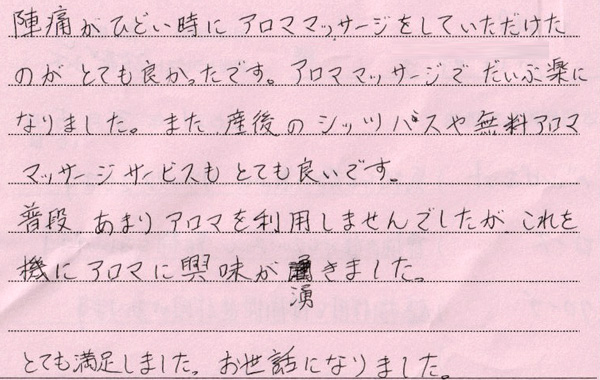 陣痛がひどい時にアロママッサージをしていただけた
のがとても良かったです。アロママッサージでだいぶ楽に
なりました。また産後のシッツバスや無料アロマ
マッサージサービスもとても良いです。
普段、あまりアロマを利用しませんでしたが、これを
機にアロマに興味が湧きました。
とても満足しました。お世話になりました。